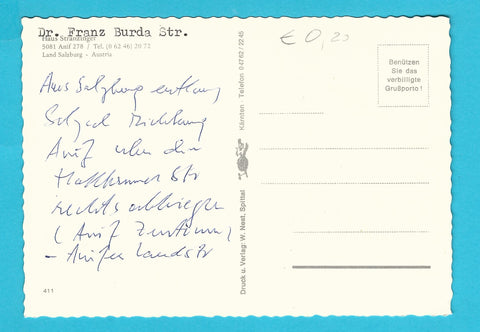 Dr. Franz Burda Str.
Haus Stranzinger
5081 Anif 278 / Tel. (0 62 46) 20 72
Land Salzburg - Austria
Aus Salzburg entlang
Salzach Richtung
Anif über die
Str
rechts abbiegen
( Anif Zentrum )
- Anifer Landstr
411
Druck u. Verlag: W. Neat, Spittal
Kärnten · Telefon 0 47 62 / 22 45
€ 0,20
Benützen
Sie das
verbilligte
Grußporto!